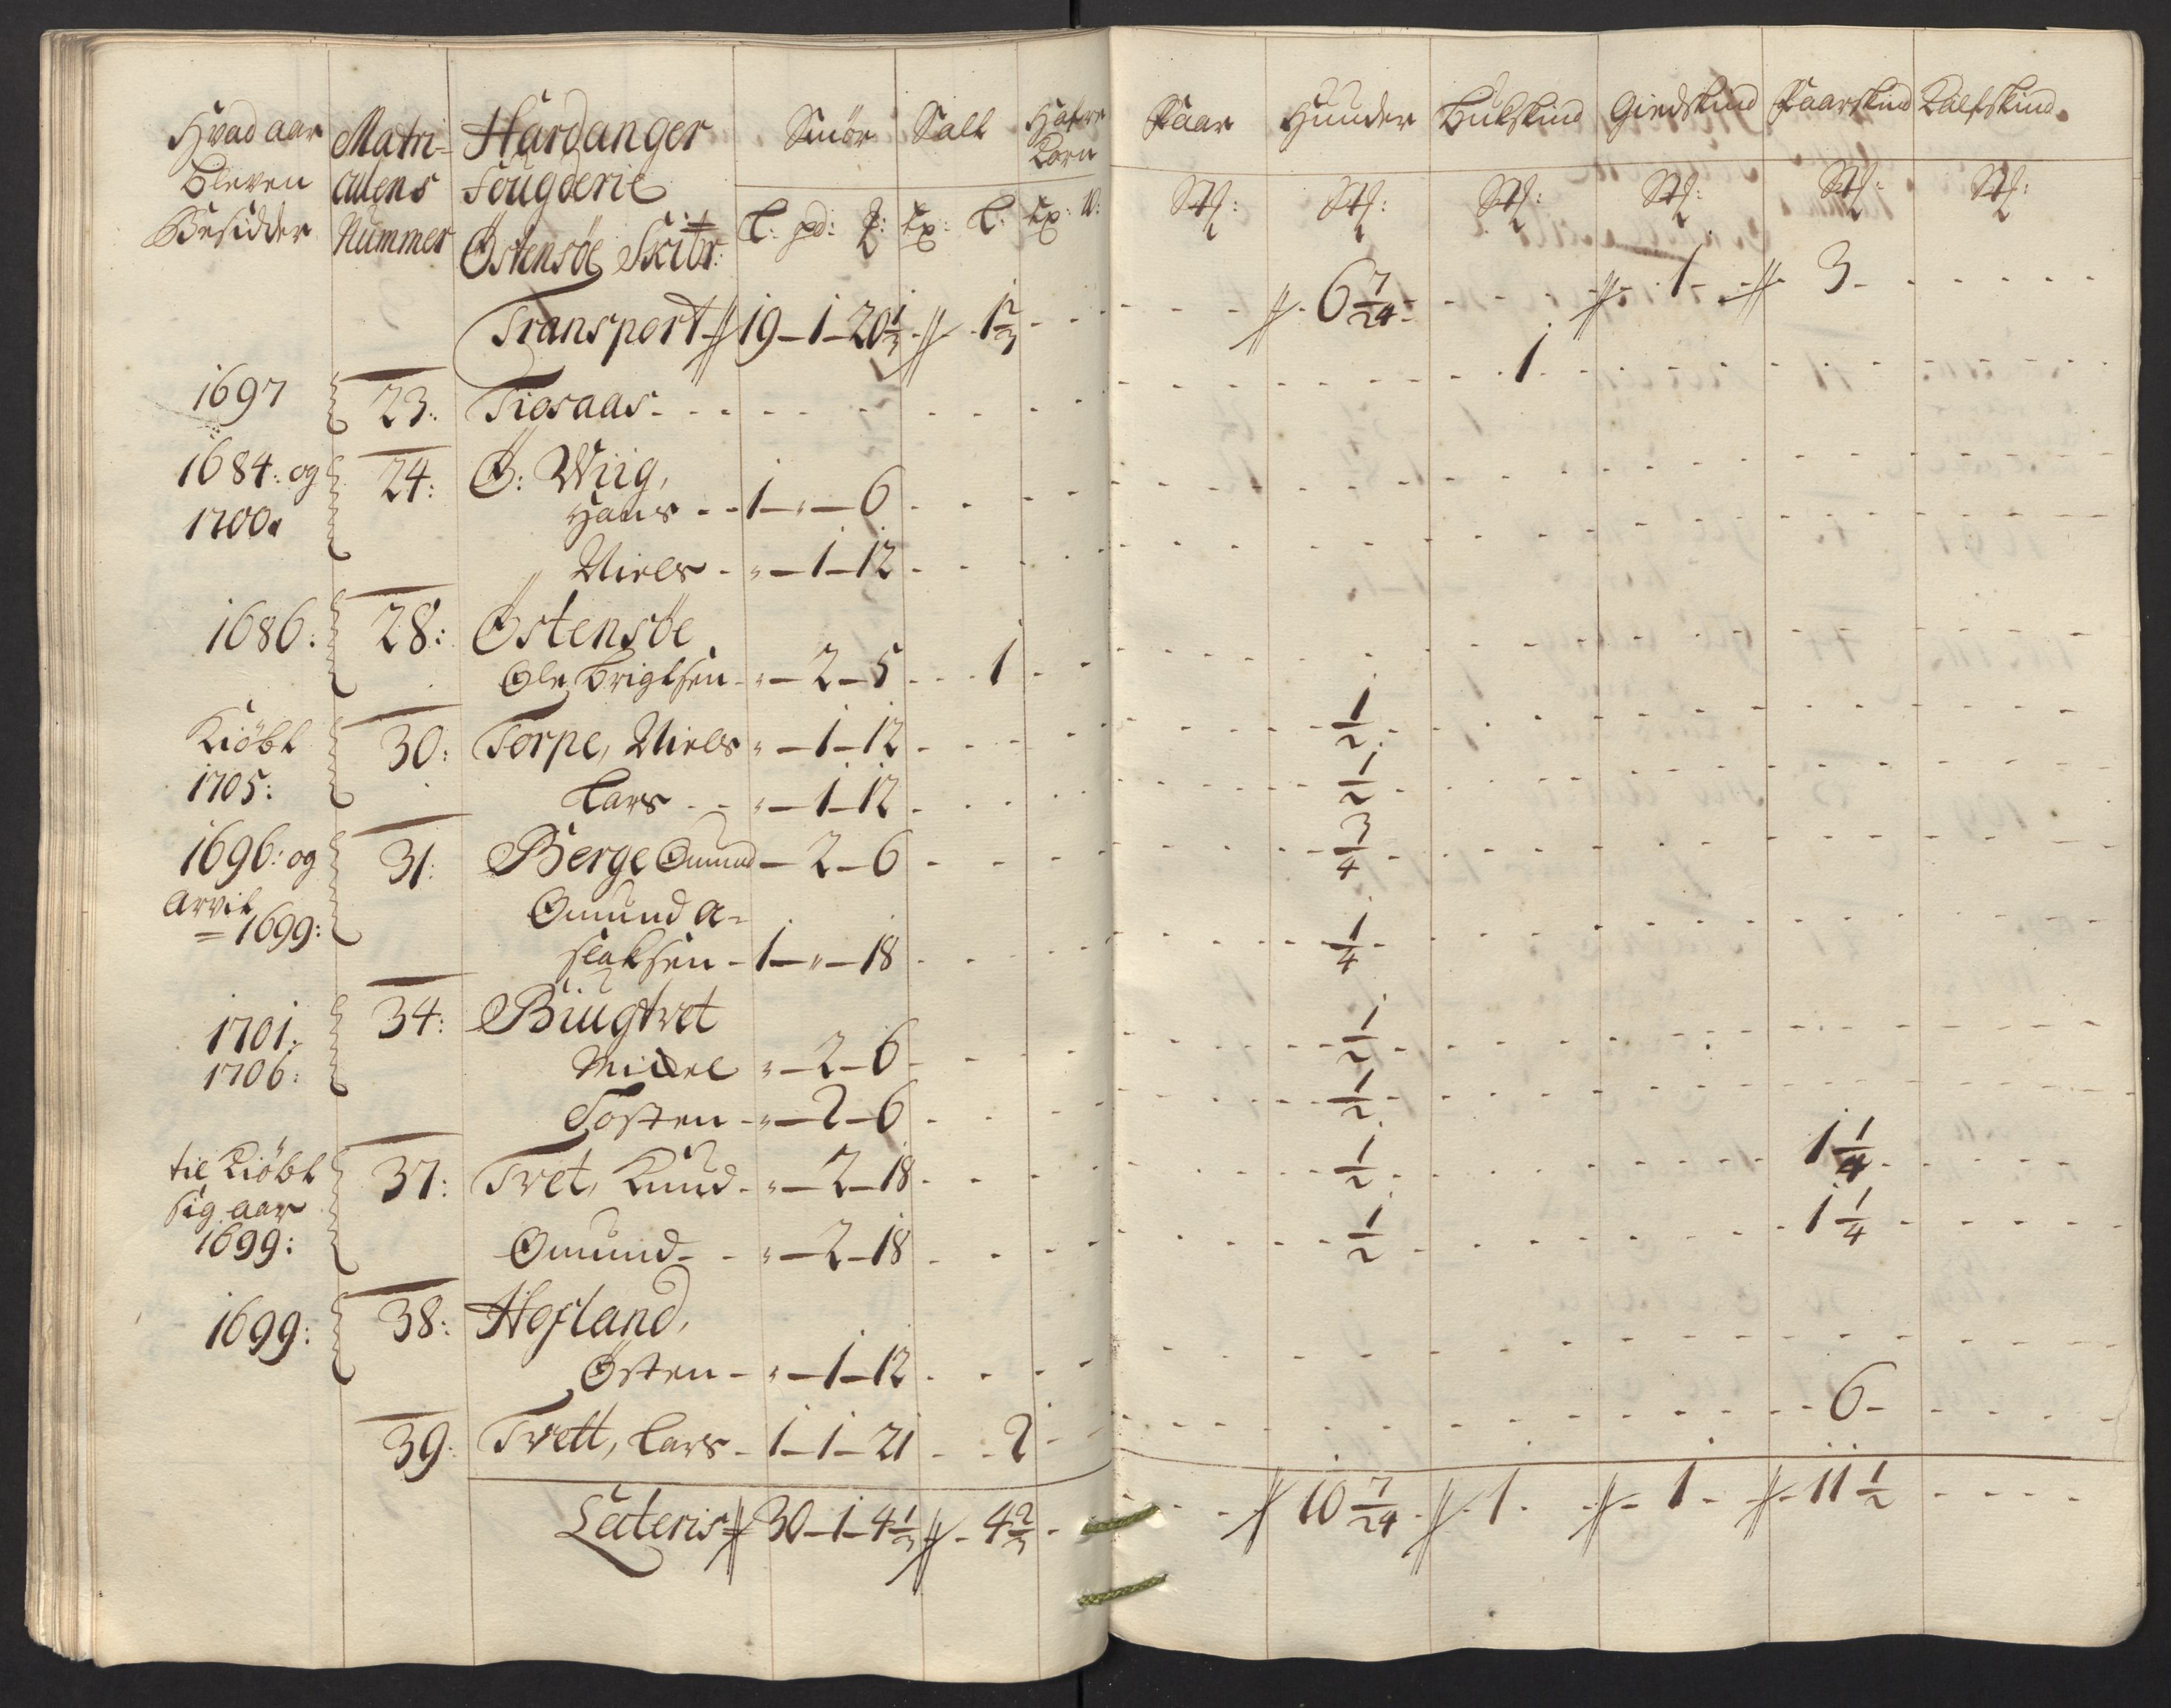 Hvad aar bleven Besidder | Matriculens Nummer | Hardanger Fougderie Østensöe Skibr: | Smör | Salt | Hafre Korn | Faar | Huuder | Bukskind | Giedskind | Faarskind | Kalfskind
L: pd: | L: | V: | Stk: | Stk: | Stk: | Stk: | Stk: | Stk:
Transport 19-1-20 1/3 - 1 2/3 - - - 6 7/24 - - 1 - 3 -
1697 23: Tiosaas - - - 1 - -
1684: og 1700 24: Ø: Wiig,
Hans - - 1 - " - 6 - -
Niels - " - 1 - 12 - -
1686: 28: Östensöe
Ole Brigtsen - " - 2 - 5 - - 1 -
Kiöbt 1705: 30: Torpe, Niels " - 1 - 12 - - - 1/2
Lars - - " - 1 - 12 - - - 1/2
1696: og 31: Berge Omund - 2 - 6 - - - 3/4
Arvit = 1699: Omund A-
slaksen - 1 - " - 18 - - - 1/4
1701. 34: Biugtvet
1706: Mickel " - 2 - 6 - - - 1/2
Tosten - " - 2 - 6 - - - 1/2
til Kiöbt 37: Tvet, Knud - " - 2 - 18 - - - 1/2 - - 1 1/4
sig aar
1699: Omund - - " - 2 - 18 - - - 1/2 - - 1 1/4
1699: 38: Hofland,
Östen - " - 1 - 12 - - -
39: Tvett, Lars - 1 - 1 - 21 - - 2 - - - 6 -
Lateris 30 - 1 - 4 1/3 - 4 2/3 - - - 10 7/24 - 1 - 1 - 11 1/2 - - - -